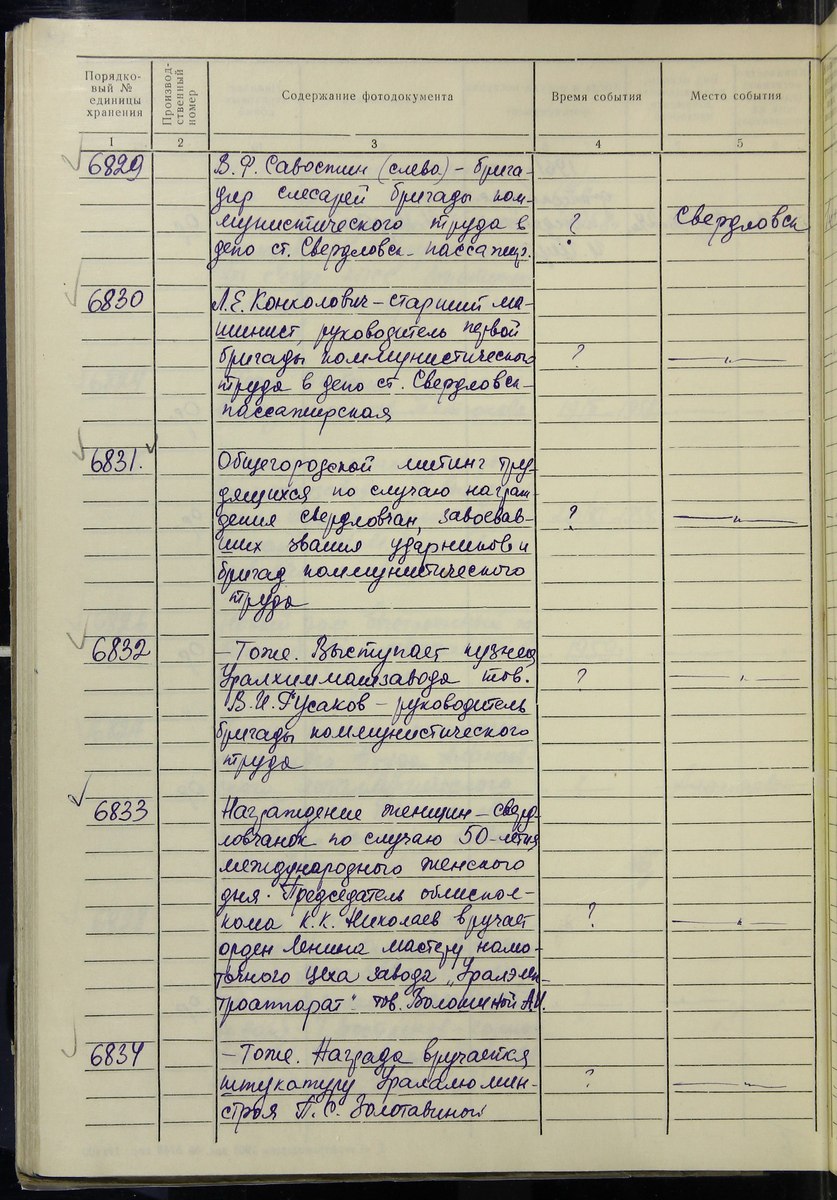 Порядко-
вый №
единицы
хранения
Производ-
ственный
номер
Содержание фотодокумента
Время события
Место события
1
2
3
4
5
6829
В. Ф. Савостин (слева) – брига-
дир слесарей бригады ком-
мунистического труда в
? Свердловск
депо ст. Свердловск-пассажир.
6830
Л. Е. Конколович – старший ма-
шинист, руководитель первой
бригады коммунистического
? —"—
труда в депо ст. Свердловск-
пассажирская
6831.
Общегородской митинг тру-
дящихся по случаю награж-
дения свердловчан, завоевав-
? —"—
ших звания ударников и
бригад коммунистического
труда
6832
– Тоже. Выступает кузнец
Уралхиммашзавода тов.
? —"—
В. И. Русаков – руководитель
бригады коммунистического
труда
6833
Награждение женщин – сверд-
ловчанок по случаю 50-летия
международного женского
дня. Председатель облиспол-
кома К. К. Николаев вручает
? —"—
орден Ленина мастеру намо-
точного цеха завода „Уралэлек-
троаппарат" тов. Волошиной А.И.
6834
– Тоже. Награда вручается
штукатуру Уралалюмин-
? —"—
строя П. С. Золотавиной